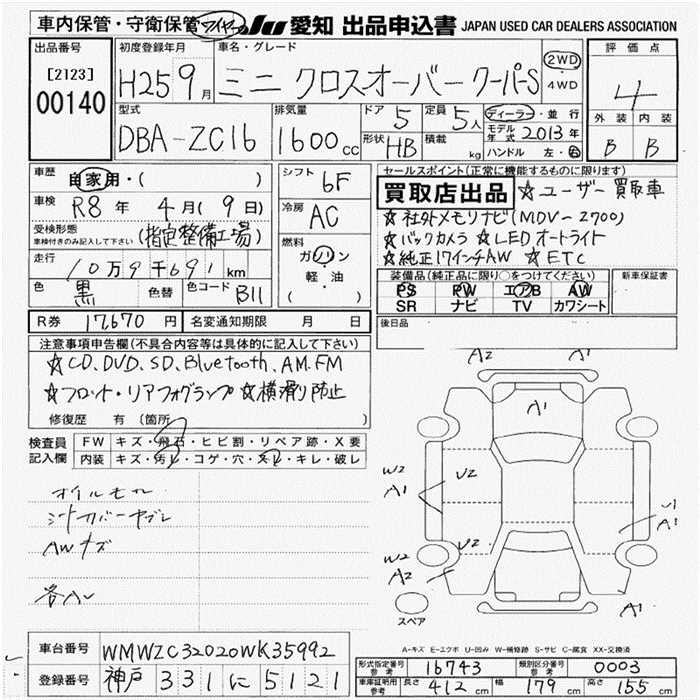 車内保管・守衛保管 ワイヤー JU 愛知 出品申込書 JAPAN USED CAR DEALERS ASSOCIATION
出品番号 初度登録年月 車名・グレード 評価点
[2123]
00140
H25 9月 ミニ クロスオーバー クーパーS 2WD・4WD 4
型式 排気量 ドア 5 定員 5人 ディーラー・並行 外装 内装
DBA-ZC16 1600cc 形状 HB 積載 kg モデル年式 2013年 B B
ハンドル 左・右
車歴 自家用・( ) シフト 6F セールスポイント(正常に機能するものに限ります)
車検 R8年 4月(9日) 冷房 AC 買取店出品 ☆ユーザー買取車
受検形態 (指定整備工場) ☆社外メモリナビ(MDV-2700)
車検付きのみ記入して下さい
燃料 ガソリン・軽・油 ( ) ☆バックカメラ ☆LEDオートライト
走行 10万9千691km ☆純正17インチAW ☆ETC
色 黒 色替 色コード B11 装備品(純正品に限り○をつけてください) 新車保証書
PS PW エアB AW
SR ナビ TV カワシート
R券 17,670円 名変通知期限 月 日 後日品
注意事項申告欄(不具合内容等は具体的に記入して下さい)
☆CD.DVD.SD.Bluetooth.AM.FM
☆フロント・リアフォグランプ ☆横滑り防止
修復歴 有 (箇所 )
検査員記入欄 FW キズ・飛石・ヒビ割・リペア跡・X要
内装 キズ・汚レ・コゲ・穴・スレ・キレ・破レ
オイルモレ
シートカバーヤブレ
AWキズ
A2 A1 A1
W2 A1 U2
U1
W2 A2 U2
A1
スペア
A-キズ E-エクボ U-凹み W-補修跡 S-サビ C-腐食 XX-交換済
車台番号 WMWZC32020WK35992
登録番号 神戸 331 に 5121
形式指定番号 参考 16743 類別区分番号 参考 0003
車庫証明用 参考 長さ 412cm 幅 179cm 高さ 155cm